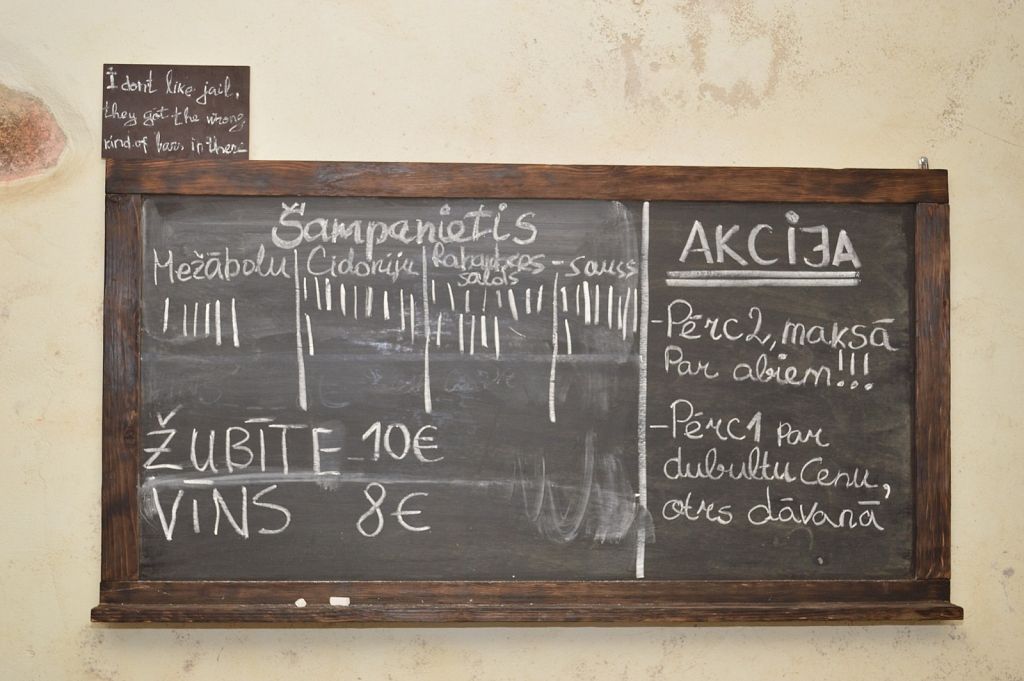 I don't like jail,
they got the wrong
kind of bars in there
Šampanietis
Mežābolu
Cidoniju
Rabarberos
salds
- sauss
ŽUBĪTE 10€
VĪNS 8€
AKCIJA
-Pērc 2, maksā
Par abiem!!!
-Pērc 1 par
dubultu Cenu,
otrs dāvanā